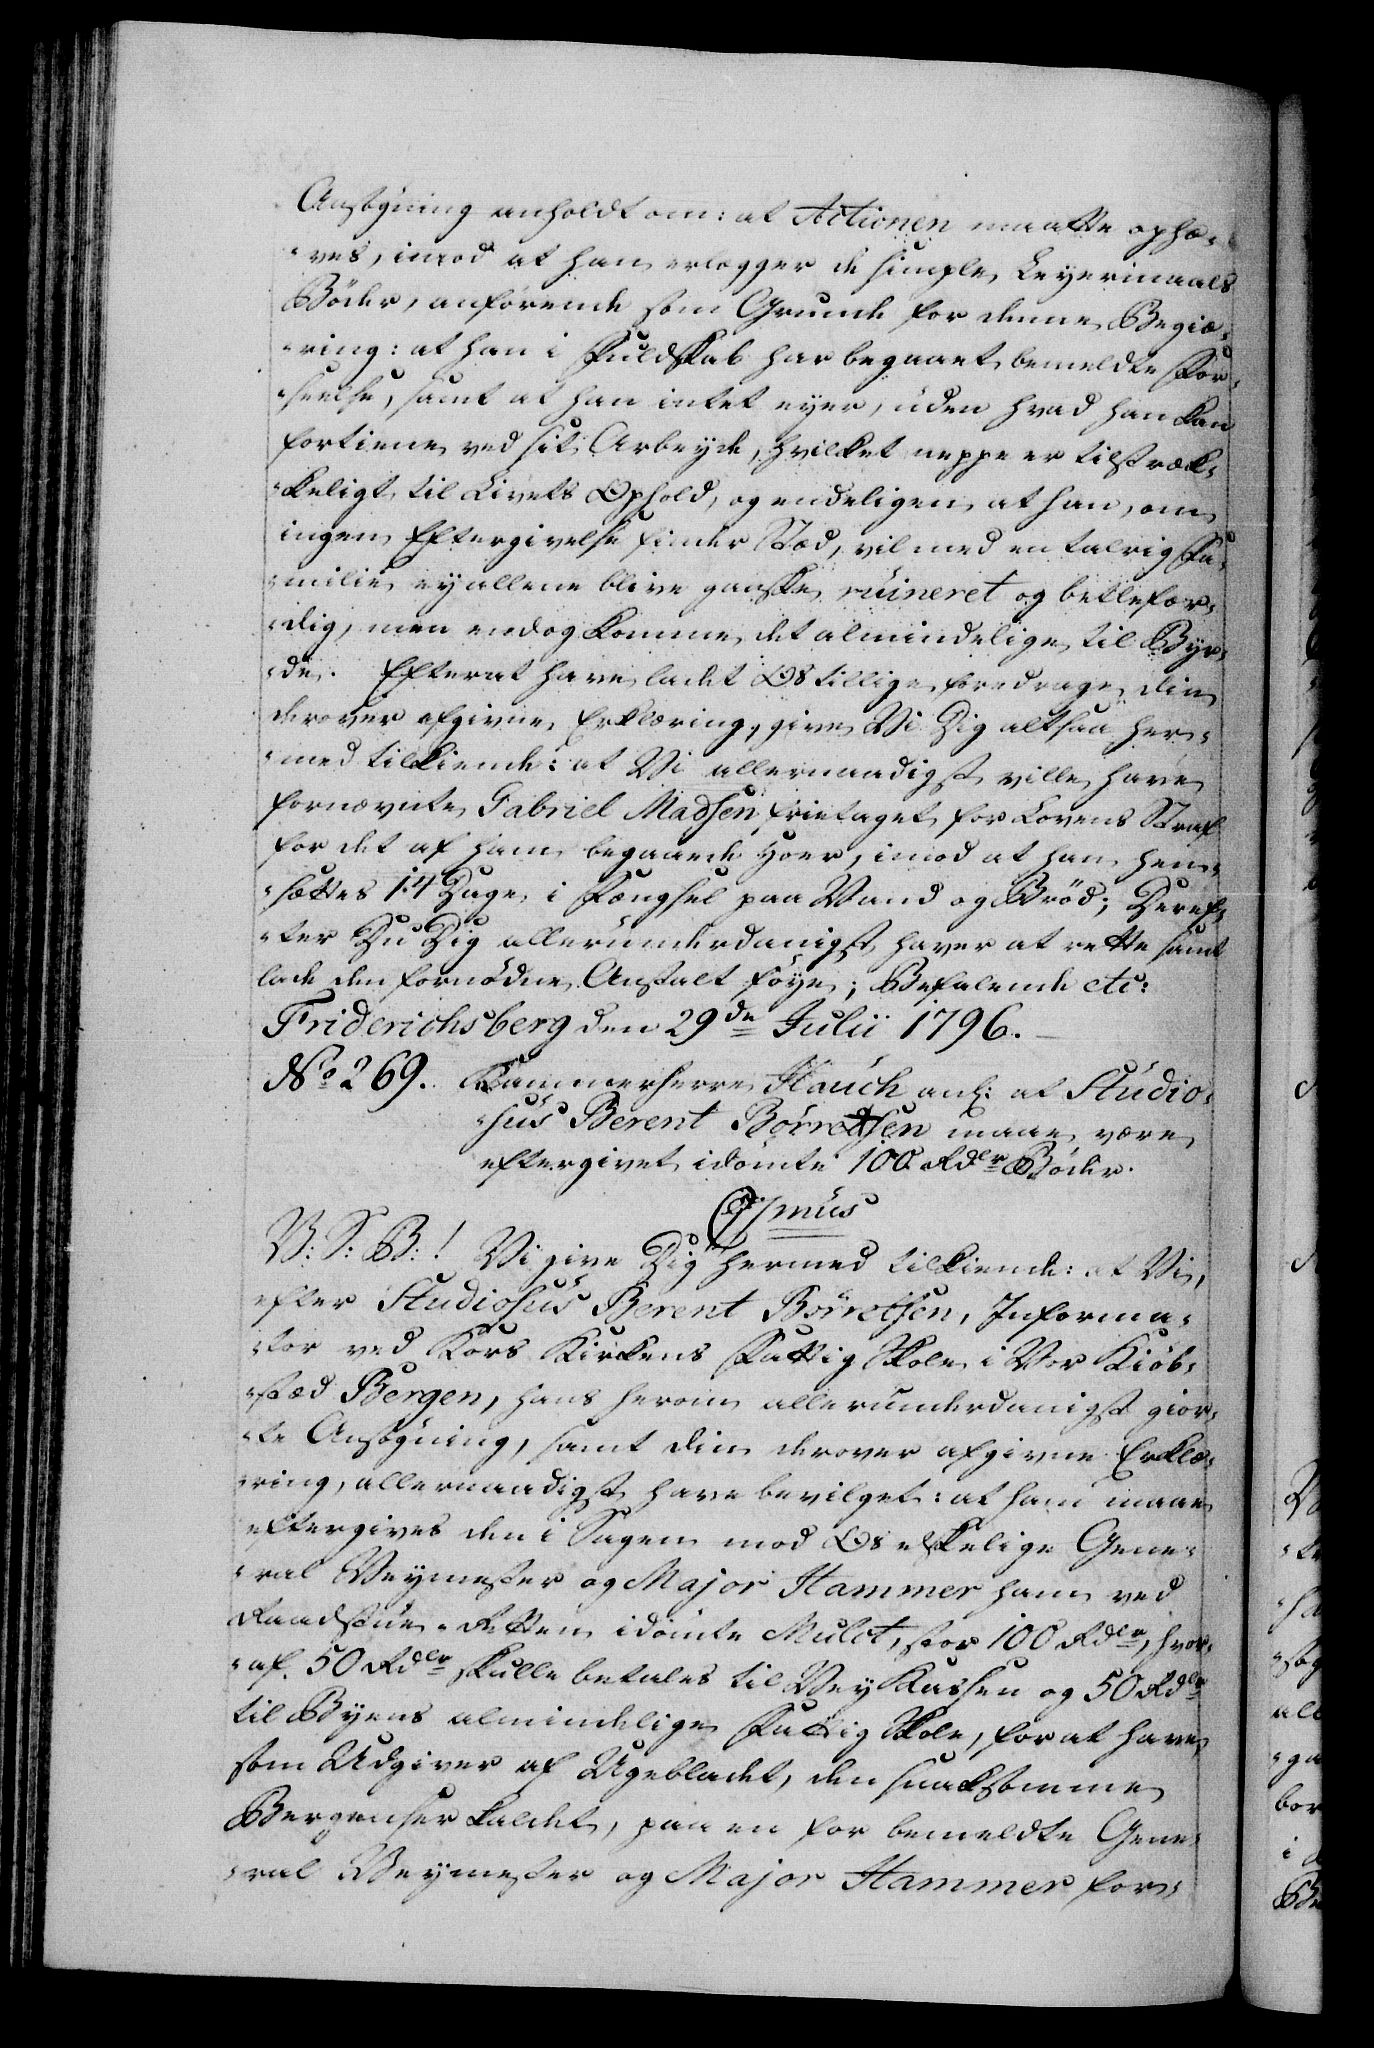 Ansøgning anholdt om: at Actionen maatte ophæ-
-ves, imod at han erlægger de simple Leyermaals
Bøder, anførende som Grunde for denne Begiæ-
-ring: at han i Fuldskab har begaaet bemeldte For-
-seelse, samt at han intet eyer, uden hvad han kan
fortiene ved sit Arbeyde, hvilket neppe er tilstræk-
-keligt til Livets Ophold, og endeligen at han, om
ingen Eftergivelse finder Stæd, vil med en talrig Fa-
-milie ey allene blive ganske ruineret og betlefær-
-dig, men endog komme det almindelige til Byr-
-de. Efterat have ladet Os tillige foredrage din
derover afgivne Erklæring, give Vi Dig altsaa her-
-med tilkiende: at Vi allernaadigst ville have
fornævnte Gabriel Madsen fritaget for Lovens Straf
for det af ham begaaede Hoer, imod at han hen-
-sættes 14 Dage i Fængsel paa Vand og Brød; Deref-
-ter Du Dig allerunderdanigst haver at rette samt
lade den fornødne Anstalt føye; Befalende etc:
Friderichsberg den 29de Julii 1796.
No 269. Kammerherre Hauch anl: at Studio-
-sus Berent Børretsen maae være
eftergivet idømte 100 Rdlr Bøder.
C7mus
V: S: B:! Vi give Dig hermed tilkiende: at Vi,
efter Studiosus Berent Børretsen, Informa-
-tor ved Kors Kirkens Fattig Skole i Vor Kiøb-
-stæd Bergen, hans herom allerunderdanigst gior-
-te Ansøgning, samt din derover afgivne Erklæ-
-ring, allernaadigst have bevilget: at ham maae
eftergives den i Sagen mod Os elskelige Gene-
-ral Veymester og Major Hammer ham ved
Raadstue-Retten idømte Mulct, stor 100 Rdlr, hvor-
-af 50 Rdlr skulle betales til Vey Kassen og 50 Rdlr
til Byens almindelige Fattig Skole, for at have
som Udgiver af Ugebladet, den snaksomme
Bergenser kaldet, paa en for bemeldte Gene-
-ral Veymester og Major Hammer for-